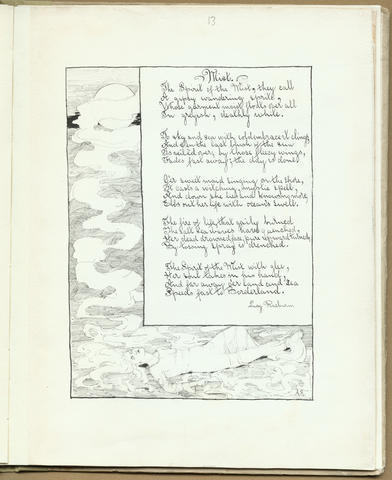 13
Mist.
The Spirit of the Mist, they call
A gypsy wandering sprite,
Whose garment moist floats over all
In greyish, deathly white.
To sky and sea with cold embrace it clings
And e'en the last flush of the sun
As veiled over by those fleecy wings,
Fades fast away; the day is done!
O'er maid singing on the shore,
It casts a witching, mystic spell,
And down she lies and knowing more
Ebbs out her life with ocean's swell.
The fire of life that gaily burned
The salt sea waves have quenched,
Her dead drowned face, pure upward turned
By tossing spray is drenched.
The Spirit of the Mist with glee,
Her soul takes in his hand
And far away o'er land and sea
Speeds fast to Borderland.
Lucy